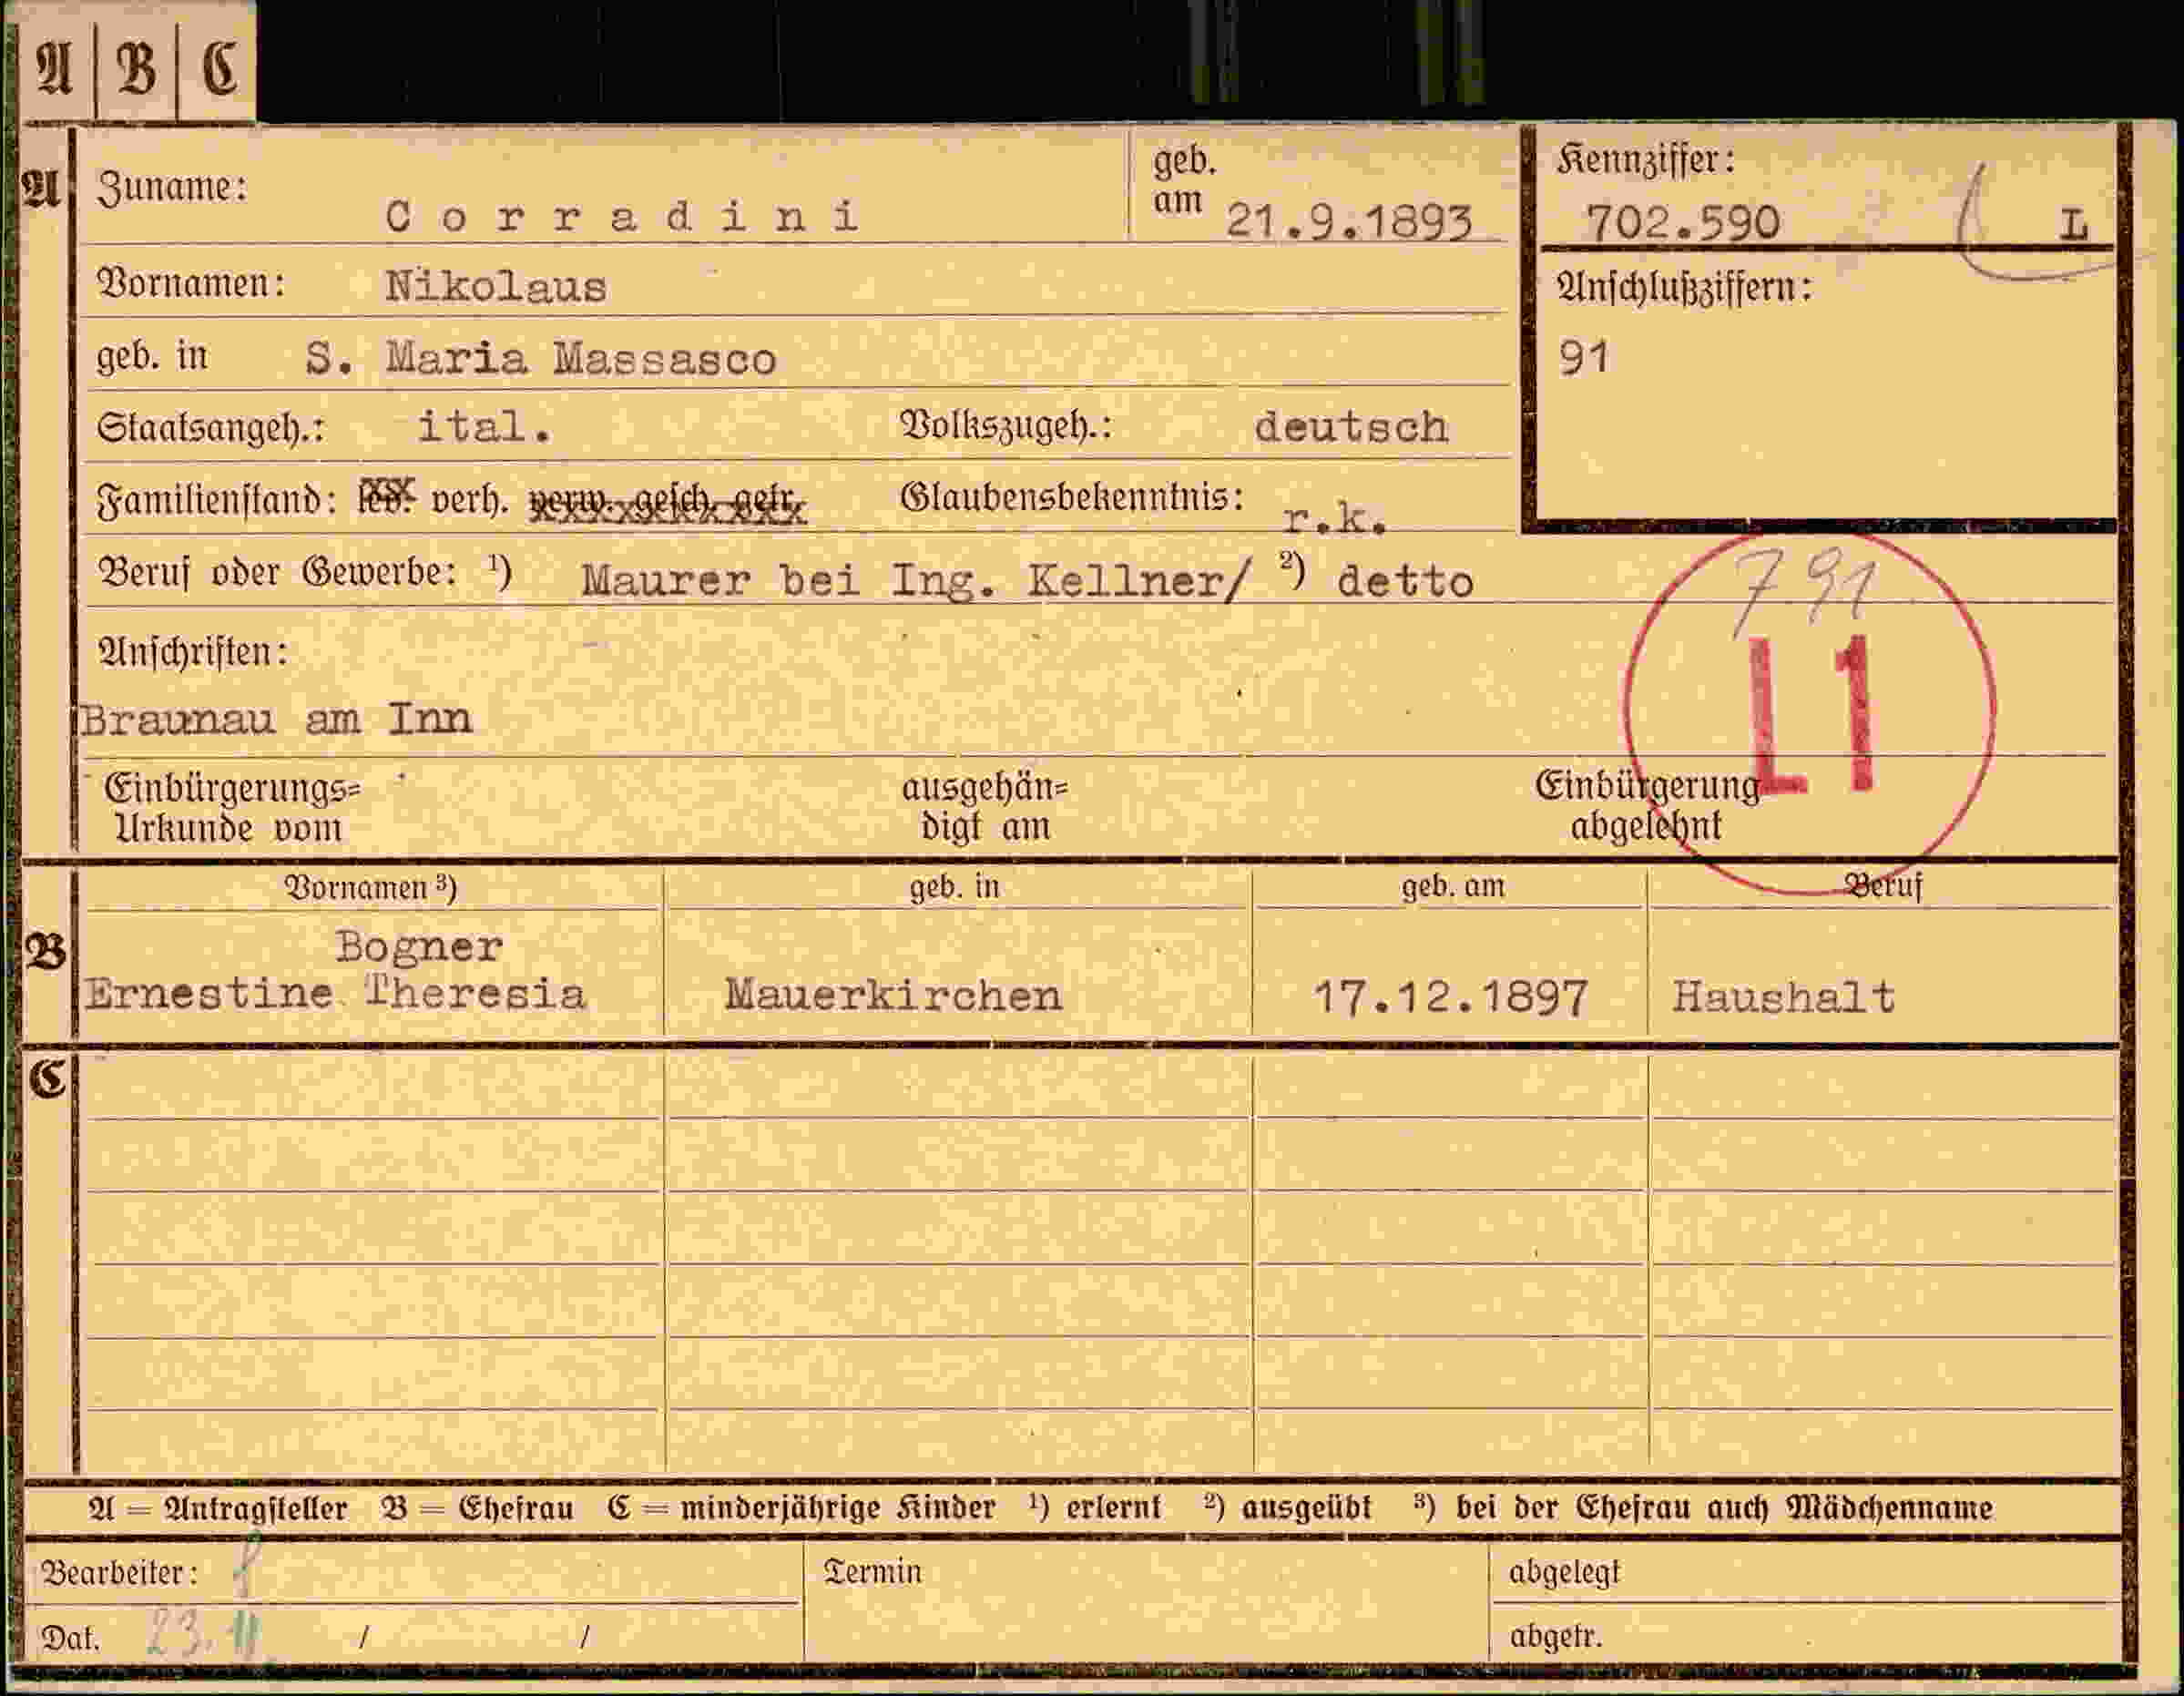 A | B | C
A
Zuname: Corradini geb. am 21.9.1893
Kennziffer:
702.590 L
Vornamen: Nikolaus
Anschlußziffern:
91
geb. in S. Maria Massasco
Staatsangeh.: ital. Volkszugeh.: deutsch
Familienstand: led. verh. verw. gesch. getr. Glaubensbekenntnis: r.k.
Beruf oder Gewerbe: ¹) Maurer bei Ing. Kellner/ ²) detto
791
L1
Anschriften:
Braunau am Inn
Einbürgerungs=
Urkunde vom
ausgehän=
digt am
Einbürgerung
abgelehnt
B
Vornamen ³) geb. in geb. am Beruf
Bogner
Ernestine Theresia Mauerkirchen 17.12.1897 Haushalt
C
A = Antragsteller B = Ehefrau C = minderjährige Kinder ¹) erlernt ²) ausgeübt ³) bei der Ehefrau auch Mädchenname
Bearbeiter: Termin abgelegt
Dat. 23.11. / / abgetr.